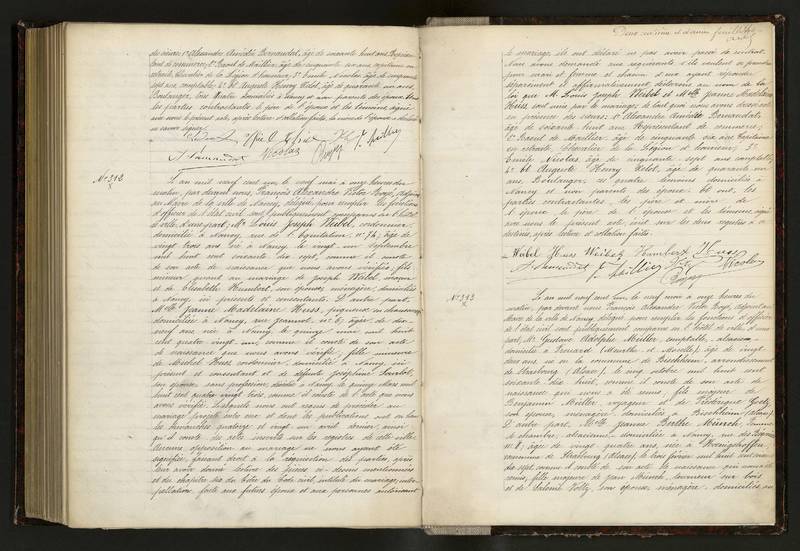 des sieurs: 1° Alexandre Amédée Bernandat, âgé de soixante huit ans, Représen
tant de commerce; 2° Raoul de Maillier, âgé de cinquante six ans, Capitaine en
retraite, Chevalier de la Légion d'honneur; 3° Emile Nicolas, âgé de cinquante
sept ans, comptable; 4° et Auguste Henry Hélot, âgé de quarante un ans,
Boulanger, tous quatre domiciliés à Nancy et non parents des époux. Et
les parties contractantes, le père de l'époux et les témoins, signé
avec nous le présent acte, après lecture
Nicolas
N° 312
L'an mil neuf cent un, le neuf mai à onze heures du
matin, par devant nous, François Alexandre Victor Boyé, Adjoint
au Maire de la ville de Nancy, délégué pour remplir les fonctions
d'officier de l'état civil, ont publiquement comparu en l'hôtel
de ville, d'une part, Mr. Louis Joseph Weibel, cordonnier,
domicilié à Nancy, rue de l'Equitation, n° 74; âgé de
vingt trois ans, né à Nancy, le vingt un Septembre
mil huit cent soixante dix sept, comme il conste
de son acte de naissance que nous avons vérifié, fils
majeur de Joseph Weibel,
et de Elisabeth Humbert, son épouse, ménagère, domiciliés
à Nancy, ici présents et consentants. D'autre part,
Melle Jeanne Madeleine Heuss, piqueuse en chaussures,
domiciliée à Nancy, rue Jeannot, n° 6; âgée de dix
neuf ans, née à Nancy, le quinze mai mil huit
cent quatre vingt un, comme il conste de son acte
de naissance que nous avons vérifié, fille mineure
de Michel Heuss, cordonnier, domicilié à Nancy, ici
présent et consentant et de défunte Joséphine
son épouse, sans profession, décédée à Nancy, le quinze Mars mil
huit cent quatre vingt trois, comme il conste de l'acte que nous
avons vérifié. Lesquels nous ont requis de procéder au
mariage projeté entre eux et dont les publications ont eu lieu
les dimanches quatorze et vingt un avril dernier, ainsi
qu'il conste des actes inscrits sur les registres de cette ville.
Aucune opposition au mariage ne nous ayant été
signifiée, faisant droit à la réquisition des parties, après
leur avoir donné lecture des pièces ci-dessus mentionnées
et du chapitre six du Titre du Code civil, intitulé du mariage, inter
pellation faite aux futurs époux et aux personnes autorisant
Deux feuillet
le mariage, ils ont déclaré ne pas avoir passé de contrat.
Nous avons demandé aux requérants s'ils veulent se prendre
pour mari et femme et chacun d'eux ayant répondu
séparément et affirmativement, déclarons au nom de la
loi que M. Louis Joseph Weibel et Melle Jeanne Madeleine
Heuss sont unis par le mariage; de tout quoi nous avons dressé acte
en présence des sieurs: 1° Alexandre Amédée Bernandat,
âgé de soixante huit ans, Représentant de commerce;
2° Raoul de Maillier, âgé de cinquante six ans, Capitaine
en retraite, Chevalier de la Légion d'honneur; 3°
Emile Nicolas, âgé de cinquante sept ans, comptable;
4° et Auguste Henry Hélot, âgé de quarante un
ans, Boulanger, les quatre témoins domiciliés à
Nancy et non parents des époux. Et ont, les
parties contractantes, les père et mère de
l'époux, le père de l'épouse et les témoins, signé
avec nous le présent acte, écrit sur les deux registres à ce
destinés, après lecture et collation faites.
Weibel Heuss Weibel Humbert Heuss
Nicolas
N° 313
L'an mil neuf cent un, le neuf mai à onze heures du
matin, par devant nous, François Alexandre Victor Boyé, Adjoint au
Maire de la ville de Nancy, délégué pour remplir les fonctions d'officier
de l'état civil, ont publiquement comparu en l'hôtel de ville, d'une
part, Mr. Gustave Adolphe Müller, comptable, alsacien,
domicilié à Frouard (Meurthe et Moselle); âgé de vingt
deux ans, né en la commune de Bischheim, arrondissement
de Strasbourg (Alsace), le cinq octobre mil huit cent
soixante dix huit, comme il conste de son acte de
naissance que nous a été remis, fils majeur de
Benjamin Müller, et de Frédérique Goetz,
son épouse, ménagère, domiciliés à Bischheim (Alsace).
D'autre part, Melle Jeanne Berthe Münch, femme
de chambre, alsacienne, domiciliée à Nancy, rue des
n° 8; âgée de vingt quatre ans, née à Koenigshoffen,
commune de Strasbourg (Alsace), le trois février mil huit cent soixante
dix sept, comme il conste de son acte de naissance qui nous a été
remis, fille majeure de Jean Münch, tourneur sur bois
et de Salomé Voltz, son épouse, ménagère, domiciliés au